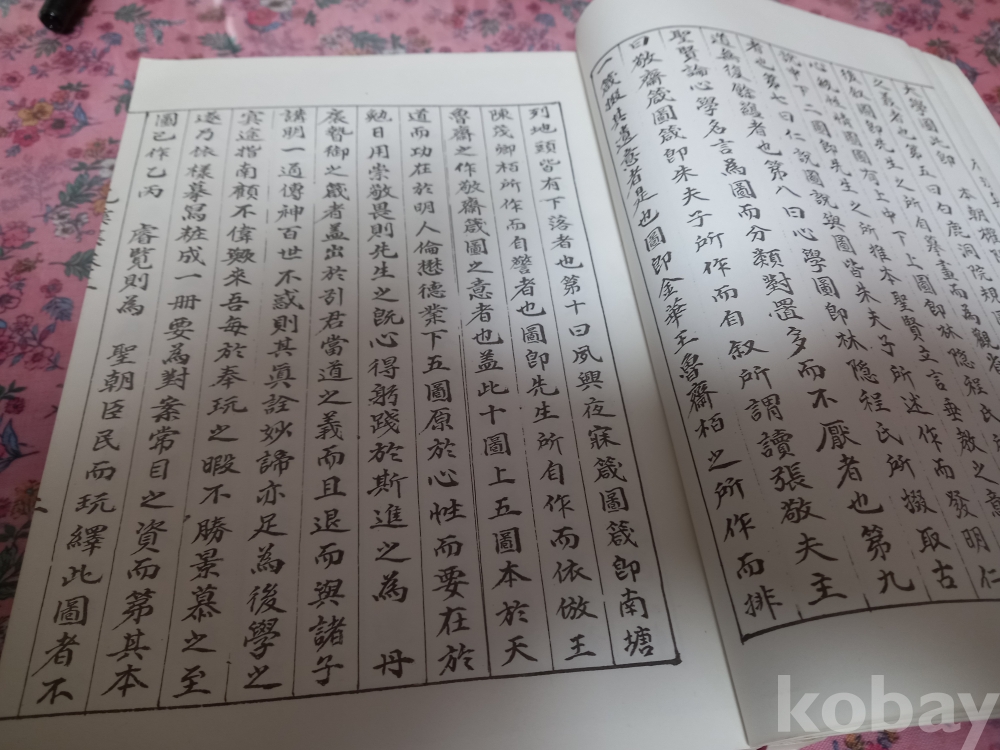 大學圖 即 本朝
者也第五曰白鹿洞院規圖
後叙圖即先生之所自 畫而為觀省
心統性情圖圖有上中下上圖即林隐程氏
說中下二圖即先生之所推本聖賢立言垂教之意
者也第七曰仁說圖說與圖皆朱夫子所述作而發明仁
道無後餘蘊者也第八曰心學圖即林隐程氏所掇取古
聖賢論心學名言為圖而分類對置多而不厭者也第九
曰敬齋箴圖箴即朱夫子所作而自叙所謂讀張敬夫主
一箴掇其遺意者是也圖即金華王魯齋栢之所作而排
列地頭皆有下落者也第十曰夙興夜寐箴圖箴即南塘
陳茂卿栢所作而自警者也圖即先生所自作而依倣王
魯齋之作敬齋箴圖之意者也盖此十圖上五圖本於天
道而功在於明人倫懋德業下五圖原於心性而要在於
勉日用崇敬畏則先生之既心得躬踐於斯進之為 丹
扆暬御之箴者盖出於引君當道之義而且退而與諸子
講明一通傳神百世不惑則其眞詮妙諦亦足為後學之
冥途指南顧不偉歟來吾每於奉玩之暇不勝景慕之至
遂乃依樣摹寫粧成一冊要為對案常目之資而第其本
圖已作乙丙 睿覽則為 聖朝臣民而玩繹此圖者不
kobay